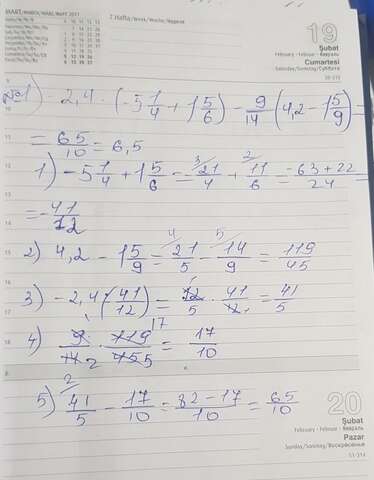 MART/MARCH/MÄRZ/MАРТ 2011
7. Hafta / Week / Woche / Неделя
19
Şubat
February - Februar - Февраль
Cumartesi
Saturday/Samstag/Суббота
50-315
№1) - 2,4 · (-5 1/4 + 1 5/6) - 9/14 (4,2 - 1 5/9) =
= 65/10 = 6,5
1) -5 1/4 + 1 5/6 = -21/4 + 11/6 = (-63 + 22)/24 =
= -41/12
2) 4,2 - 1 5/9 = 21/5 - 14/9 = 119/45
3) -2,4 · (-41/12) = 12/5 · 41/12 = 41/5
4) 9/14 · 119/45 = 17/10
5) 41/5 - 17/10 = (82 - 17)/10 = 65/10
20
Şubat
February - Februar - Февраль
Pazar
Sunday/Sonntag/Воскресенье
51-314